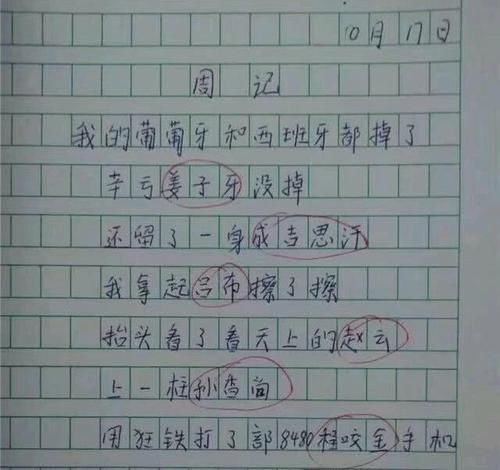 10月17日
周记
我的葡萄牙和西班牙都掉了
辛亏姜子牙没掉
还留了一身成吉思汗
我拿起吕布擦了擦
抬头看了看天上的赵云
上一柱孙香尚
用狂铁打了部8480程咬金手机